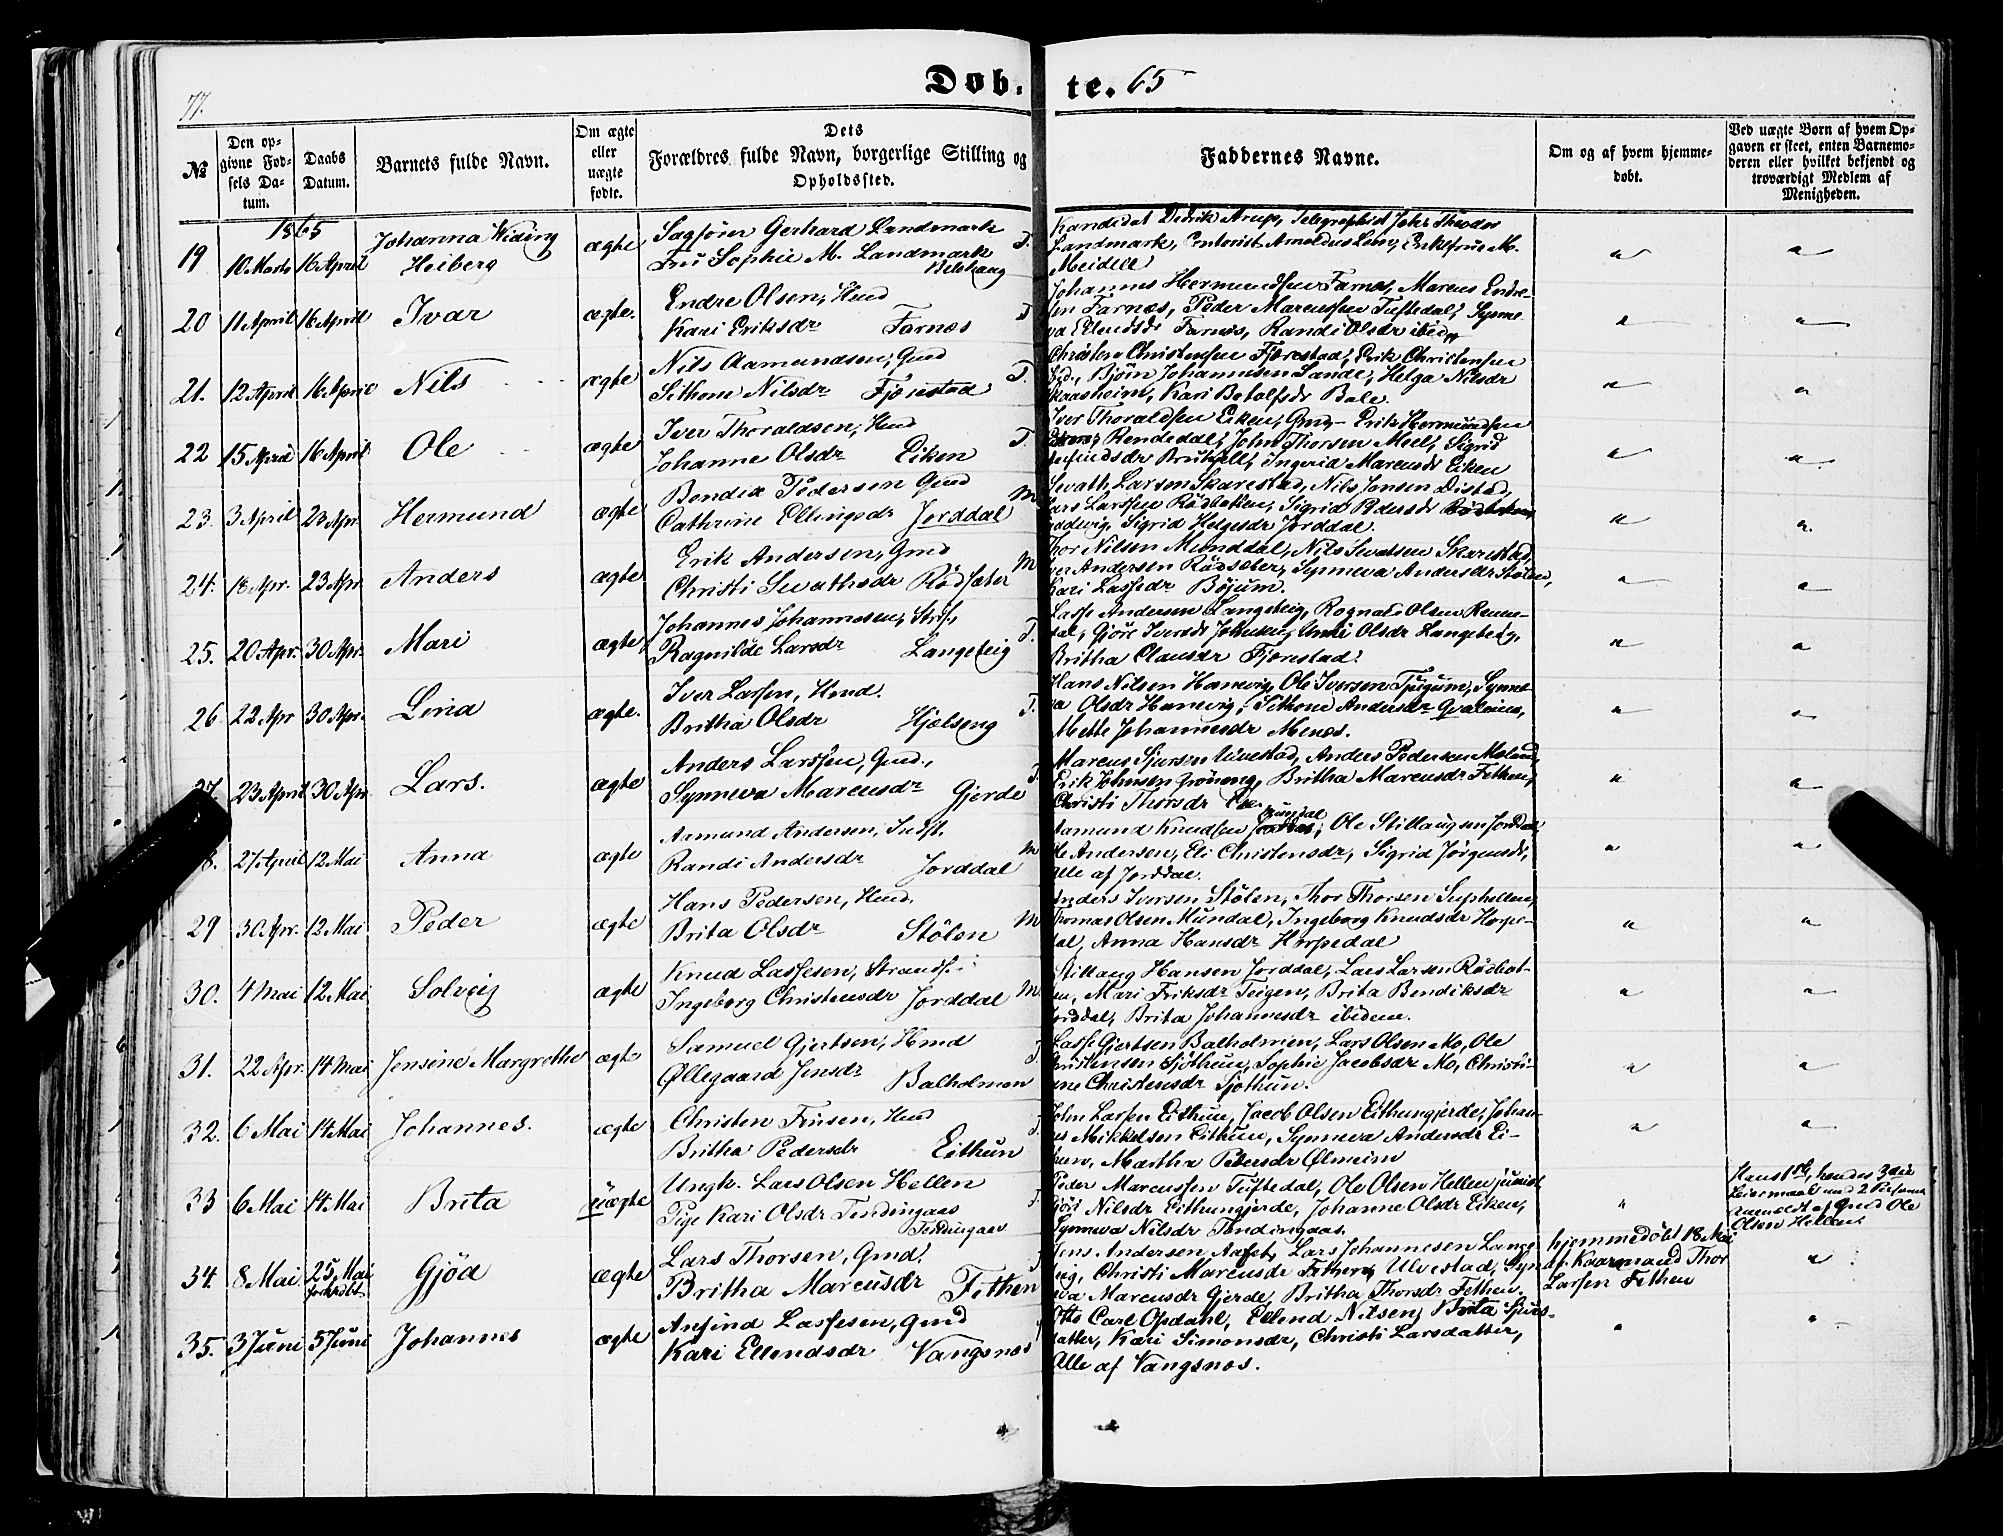 77.
Døb-te. 65
№
Den opgivne Fødsels Datum.
Daabs Datum.
Barnets fulde Navn.
Om ægte eller uægte fødte.
Dets Forældres fulde Navn, borgerlige Stilling og Opholdssted.
Faddernes Navne.
Om og af hvem hjemmedøbt.
Ved uægte Børn af hvem Opgaven er skeet, enten Barnemoderen eller hvilket bekjendt og troværdigt Medlem af Menigheden.
1865
19 10 Marts 16 April Johanna Widing Heiberg ægte
Sagfører Gerhard Landmark
Fru Sophie M. Landmark
T.
Kandidat Didrik Arup, Telegraphist Johs Theodor
Landmark, Contorist Arnoldus Lem, Enkefrue M.
Meidell
20 11 April 16 April Ivar ægte.
Endre Olsen, Hmd
Kari Eriksdr Farnæs
T
Johannes Hermundsen Farnæs, Marcus Endre-
sen Farnæs, Peder Marcussen Tuftedal, Synne-
va Farnæs, Randi Olsdr ibid
21. 12 April 16 April Nils ægte
Nils Aamundsen, Gmd
Sithone Nilsdr Fjørestad
T.
Christen Christensen Fjærestad, Erik Christensen
ibid., Bjørn Johannesen Sande, Helga Nilsdr
Kaasheim, Kari Botolfsdr Bale.
22 15 April 16 April Ole ægte
Iver Thoraldsen, Hmd
Johanne Olsdr Eiken
T
Iver Thoraldsen Eiken, Gmd, Erik Hermundsen
Rendedal, John Thorsen Meel, Sigrid
Ingerid Marcusdr Eiken
23. 3 April 23 Apr. Hermund ægte
Bendix Pedersen Gmd
Cathrine Ellingsdr Jorddal
M
Sevath Larsen Skarestad, Nils Jonsen Distad,
Lars Larssen Rødbakken, Sigrid Pedersdr
Sigrid Helgesdr Jorddal.
24. 18 Apr. 23 Apr Anders ægte
Erik Andersen, Gmd
Christi Sevathsdr Rødsæter
M
Thor Nilsen Munddal, Nils Sevatsen Skarestad,
Iver Andersen Rødsæter, Synneva Andersdr Stølen,
Kari Lassedr Bøjum.
25. 20 Apr. 30 Apr. Mari ægte
Johannes Johannesen, Strf.,
Ragnilde Larsdr Langeteig
T.
Lasse Andersen Langeteig, Rognald Olsen Renne-
dal, Gjøre Iversdr Unni Olsdr Langeteig,
Britha Olausdr Fjærestad.
26 22 Apr 30 Apr. Lina ægte.
Iver Larsen, Hmd.
Britha Olsdr Hjelseng
T.
Hans Nilsen Hamvig, Ole Iversen Tjugum, Synne-
va Olsdr Hamvig, Sithone Andersdr
Mette Johannesdr Menes.
27. 23 April 30 Apr. Lars. ægte
Anders Larssen, Gmd.,
Synneva Marcusdr Gjerde
T.
Marcus Sjursen Ulvestad, Anders Pedersen
Erik Johnsen Grøneng, Britha Marcusdr Fethen,
Christi Thorsdr
28. 27 April 12 Mai Anna ægte
Aamund Andersen, Indst.
Randi Andersdr Jorddal
M
Aamund Knudsen Mundal, Ole Stillaugsen Jorddal,
Ole Andersen, Eli Christensdr, Sigrid Jørgensdr,
Alle af Jorddal.
29 30 Apr. 12 Mai Peder ægte
Hans Pedersen, Hmd.
Brita Olsdr Stølen
M
Anders Iversen Stølen, Thor Thorsen Suphellen,
Thomas Olsen Mundal, Ingeborg Knudsdr Horpe-
dal, Anna Hansdr Horpedal
30. 4 Mai 12 Mai Solveig ægte
Knud Lassesen, Strandf.
Ingeborg Christensdr Jorddal
M
Stillaug Hansen Jorddal, Lars Larsen Rødbot-
ten, Mari Eriksdr Teigen, Brita Bendiksdr
Jorddal, Brita Johannesdr ibidem.
31. 22 Apr. 14 Mai Jensine Margrethe ægte
Samuel Gjertsen, Hmd
Øllegaard Jensdr Balholmen
T
Lasse Gjertsen Balholmen, Lars Olsen Mo, Ole
Christensen Sjøthun, Sophie Jacobsdr Mo, Christi-
ane Christensdr Sjøthun.
32. 6 Mai 14 Mai Johannes. ægte
Christen Finsen, Hmd
Britha Pedersdr Eithun
T
John Larsen Eithun, Jacob Olsen Eithungjerde, Johan-
nes Mikkelsen Eithun, Synneva Andersdr Ei-
thun, Martha Pedersdr Ølmeim
33 6 Mai 14 Mai Brita uægte
Ungk. Lars Olsen Hellen
Pige Kari Olsdr Tendingaas
Tendingaas
T
Peder Marcussen Tuftedal, Ole Olsen Hellen junior
Gjøri Nilsdr Eithungjerde, Johanne Olsdr Eiken,
Synneva Nilsdr Tendingaas.
hendes 3die
Leiermaal med 2 Personer
anmeldt af Gmd Ole
Olsen Hellen
34. 8 Mai 25 Mai Gjød ægte
Lars Thorsen, Gmd.
Britha Marcusdr Fethen
T
Jens Andersen Lars Johannesen Lange-
teig, Christi Marcusdr Ulvestad, Syn-
neva Marcusdr Gjerde, Britha Thorsdr Fethen.
hjemmedøbt 18 Mai
af Kaarmand Thor
Larsen Fethen
35. 3 Juni 5 Juni Johannes ægte
Anfind Lassesen, Gmd
Kari Ellendsdr Vangsnæs
Otto Carl Opdahl, Ellend Nilsen, Brita Sjurs-
datter, Kari Simonsdr, Christi Larsdatter,
Alle af Vangsnæs.